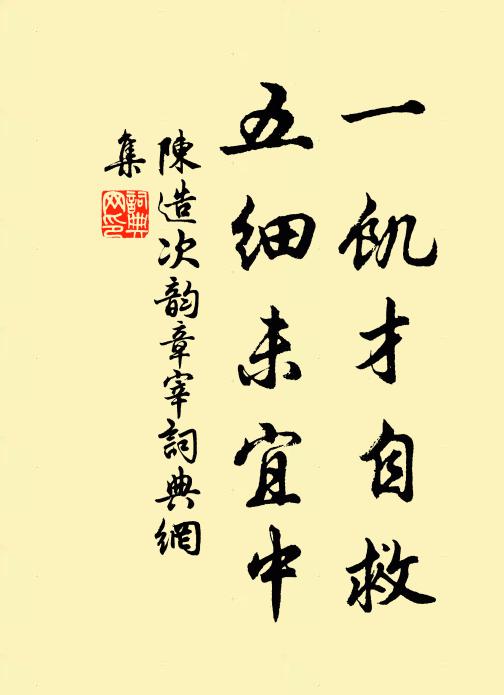 一飢才自救
五細未宜中
陳造次韵章宰詞典網
集
詞典
网印